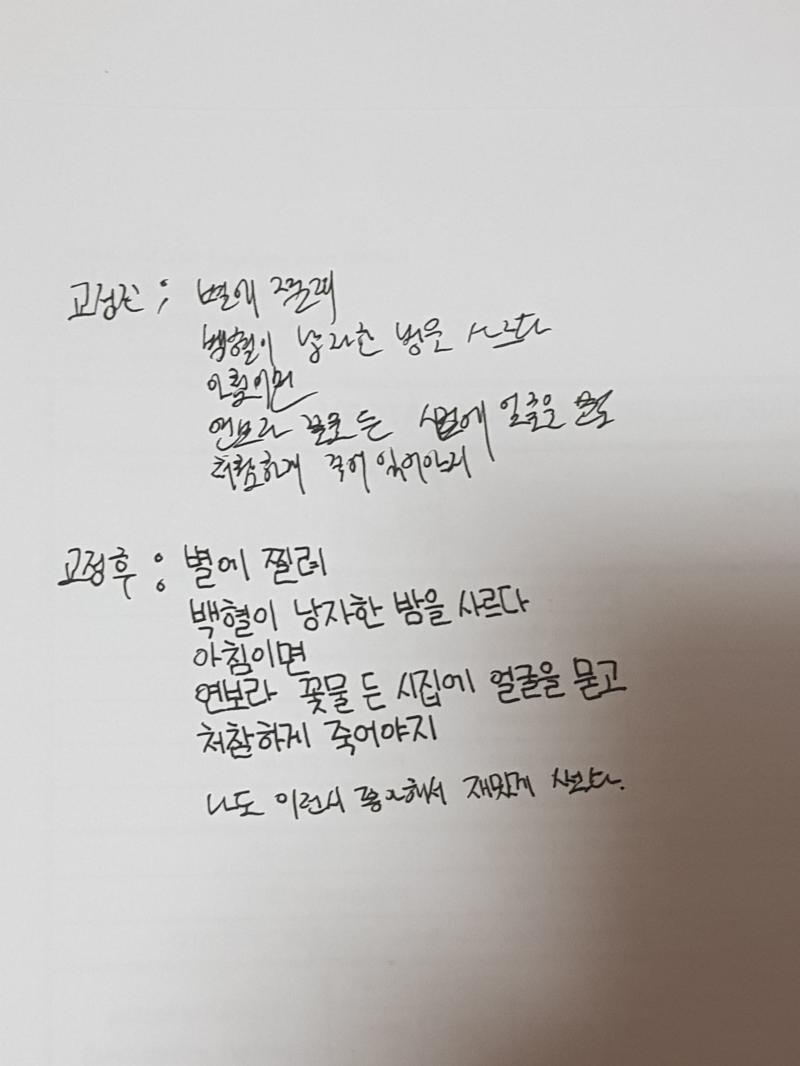 교정전 ; 별에 찔려
백혈이 낭자한 밤을 사르다
아침이면
연보라 꽃물 든 시집에 얼굴을 묻고
처참하게 죽어 있어야지
교정후 : 별에 찔려
백혈이 낭자한 밤을 사르다
아침이면
연보라 꽃물 든 시집에 얼굴을 묻고
처참하게 죽어야지
나도 이런시 좋아해서 재밌게